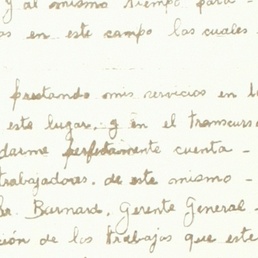 y al mismo tiempo para -
as en este campo las cuales
prestando mis servicios en l
este lugar, y en el transcurs
darme perfectamente cuenta -
trabajadores, de este mismo -
Sr. Burnard, Gerente General -
ción de los trabajos que este